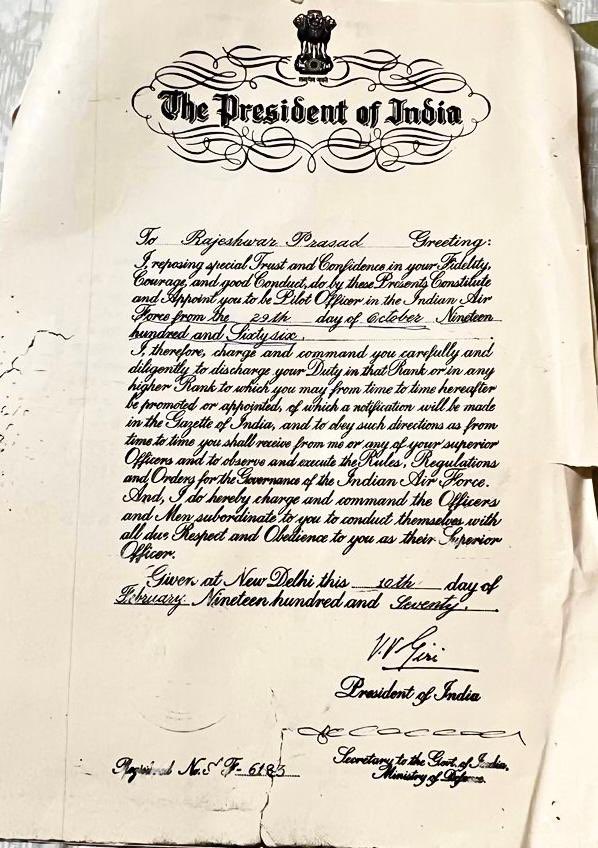 सत्यमेव जयते
The President of India
To Rajeshwar Prasad Greeting:
I, reposing special Trust and Confidence in your Fidelity,
Courage, and good Conduct, do by these Presents Constitute
and Appoint you to be Pilot Officer in the Indian Air
Force from the 29th day of October Nineteen
hundred and Sixtysix.
I, therefore, charge and command you carefully and
diligently to discharge your Duty in that Rank or in any
higher Rank to which you may from time to time hereafter
be promoted or appointed, of which a notification will be made
in the Gazette of India, and to obey such directions as from
time to time you shall receive from me or any of your superior
Officers and to observe and execute the Rules, Regulations
and Orders for the Governance of the Indian Air Force.
And, I do hereby charge and command the Officers
and Men subordinate to you to conduct themselves with
all due Respect and Obedience to you as their Superior
Officer.
Given at New Delhi this 10th day of
February Nineteen hundred and Seventy.
V.V Giri
President of India
Secretary to the Govt. of India,
Ministry of Defence.
Registered No. 6183